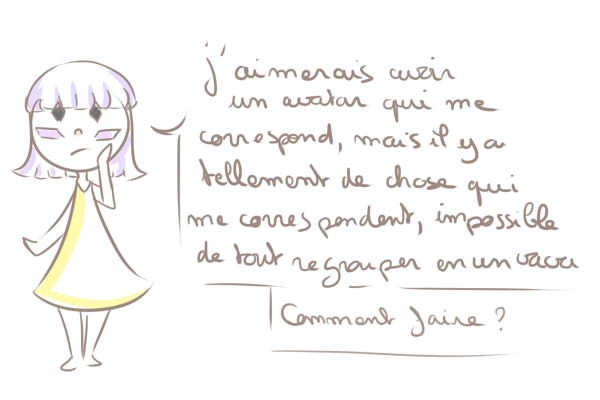 j'aimerais avoir
un avatar qui me
correspond, mais il y a
tellement de chose qui
me correspondent, impossible
de tout regrouper en un
Comment faire ?